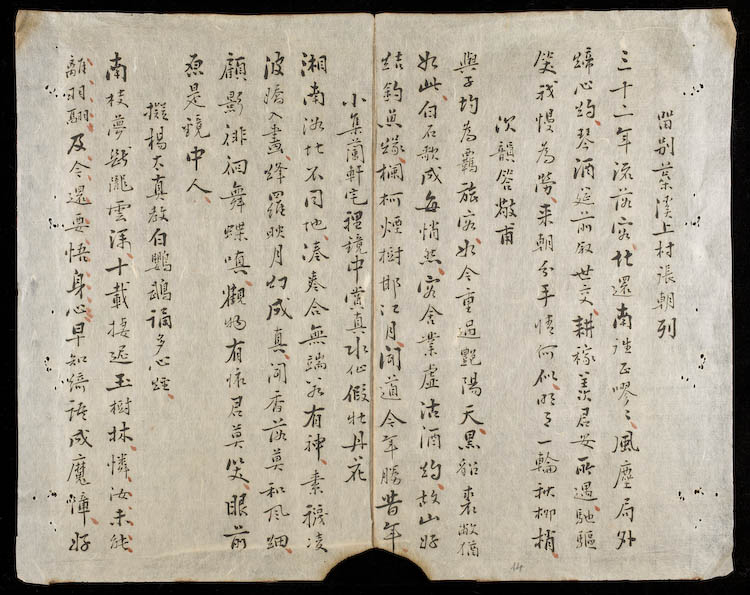 留別葉溪上村張朝列
三十二年流落客北還南往正嘐〻風塵局外
歸心約琴酒筵前叙世交耕稼羨君安所遇馳驅
笑我慢為勞來朝分手情何似明月一輪秋柳梢
次韻答敬甫
與子均為羈旅客如今重過艷陽天黑貂裘敝猶
如此白石歌成每悄然客舍業虛沽酒約故山好
結釣魚緣欄柯煙樹邯江月問道今年勝昔年
小集蘭軒宅裡鏡中賞真水仙假牡丹花
湘南洛北不同地湊泰合無端若有神素襪凌
波嬌入畫絳羅映月幻成真聞香落莫和風細
顧影徘徊舞蝶嗔觀物有懷君莫笑眼前
原是鏡中人
擬楊太真教白鸚鵡誦多心經
南枝夢斷隴雲深十載棲遲玉樹林憐汝未能
離羽翮及今還要悟身心早知綺語成魔障好